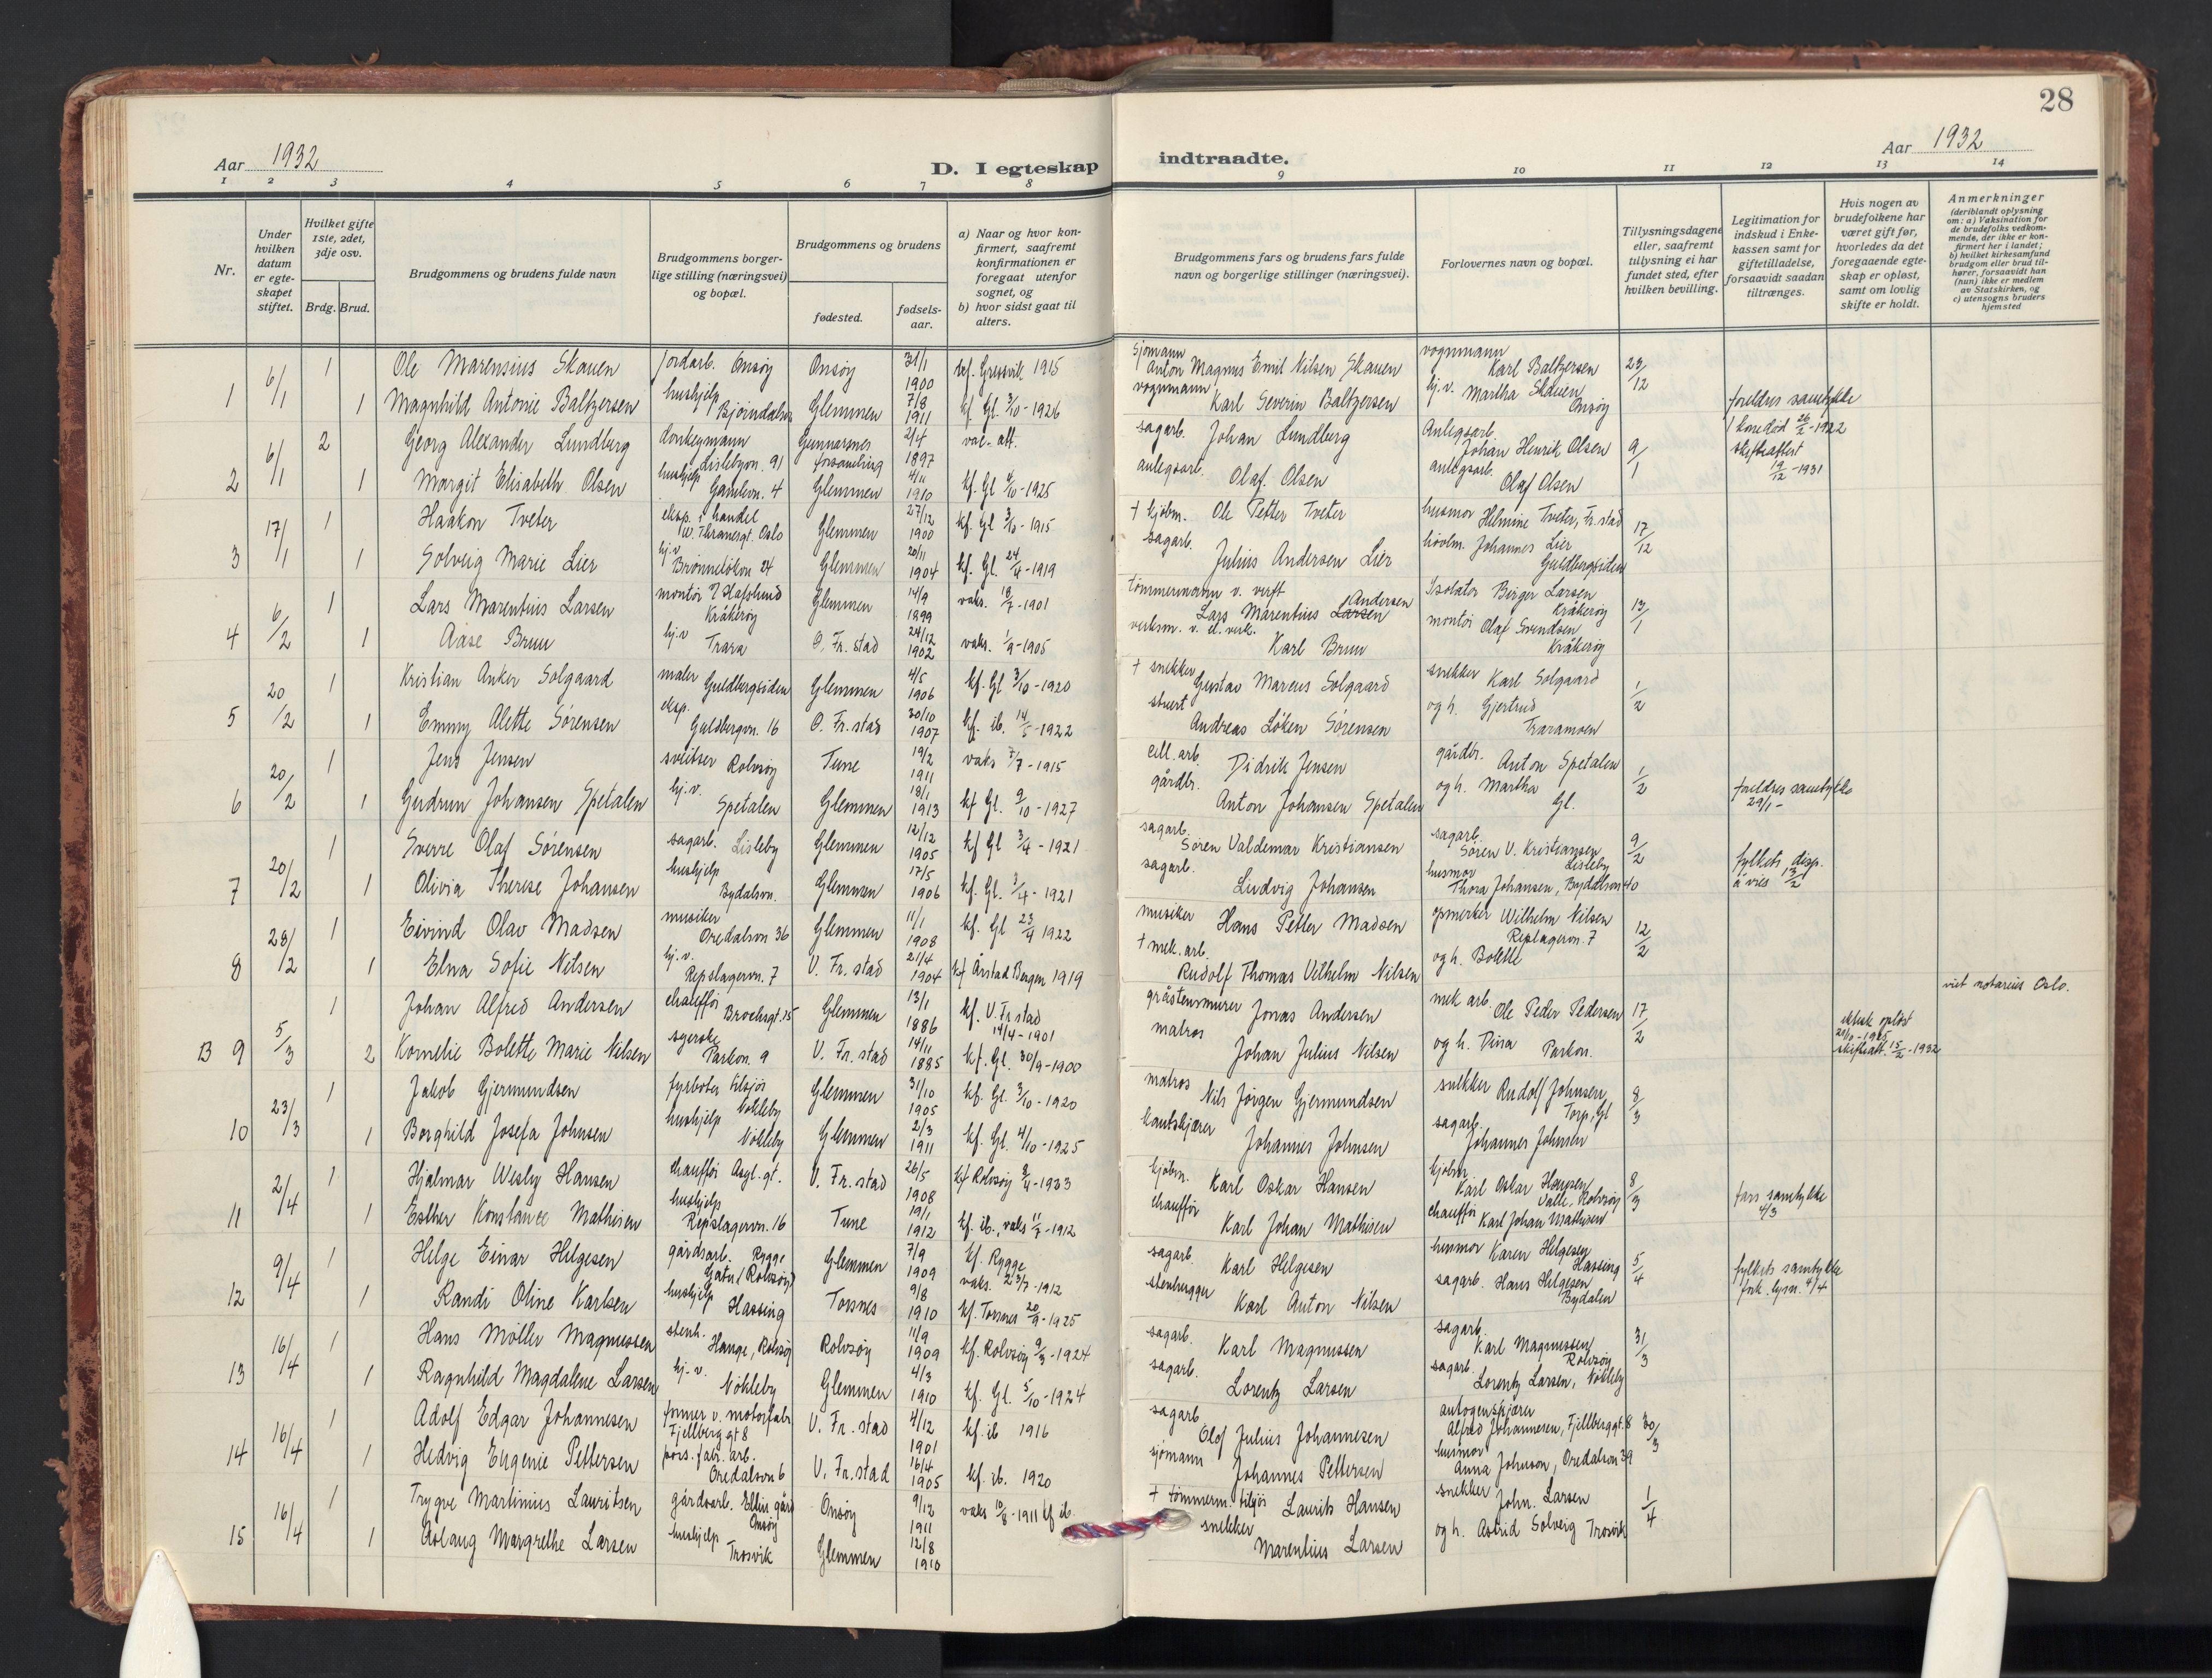 28
Aar 1932
D. I egteskap indtraadte.
Aar 1932
1 2 3 4 5 6 7 8 9 10 11 12 13 14
Nr.
Under hvilken datum er egteskapet stiftet.
Hvilket gifte 1ste, 2det, 3dje osv.
Brdg. Brud.
Brudgommens og brudens fulde navn
Brudgommens borgerlige stilling (næringsvei) og bopæl.
Brudgommens og brudens
fødested.
fødselsaar.
a) Naar og hvor konfirmert, saafremt konfirmationen er foregaat utenfor sognet, og
b) hvor sidst gaat til alters.
Brudgommens fars og brudens fars fulde navn og borgerlige stillinger (næringsvei).
Forlovernes navn og bopæl.
Tillysningsdagene eller, saafremt tillysning ei har fundet sted, efter hvilken bevilling.
Legitimation for indskud i Enkekassen samt for giftetilladelse, forsaavidt saadan tiltrænges.
Hvis nogen av brudefolkene har været gift før, hvorledes da det foregaaende egteskap er opløst, samt om lovlig skifte er holdt.
Anmerkninger
(deriblandt oplysning om: a) Vaksination for de brudefolks vedkommende, der ikke er konfirmert her i landet; b) hvilket kirkesamfund brudgom eller brud tilhører, forsaavidt han (hun) ikke er medlem av Statskirken, og c) utensogns bruders hjemsted
1 6/1 1 Ole Marensius Skauen jordarb. Onsøy Onsøy 31/1 1900 kf. Gressvik 1915 sjømann Anton Magnus Emil Nilsen Skauen vognmann Karl Baltzersen 23/12
1 Magnhild Antonie Baltzersen hushjelp Bjørndalen Glemmen 7/8 1911 kf Gl 3/10-1926 vognmann Karl Severin Baltzersen hj.v. Martha Skauen Onsøy foreldres samtykke
2 6/1 2 Georg Alexander Lundberg donkeymann Lislebyvn. 91 Gunnarsnes forsamling 2/4 1897 vac-att. sagarb. Johan Lundberg Anlegsarb. Johan Henrik Olsen 9/1 1 kone død 26/2-1922 skifteattest 19/12-1931
1 Margit Elisabeth Olsen hushjelp Gamlevn. 4 Glemmen 4/11 1910 kf. Gl 4/10-1925 anlegsarb. Olaf Olsen anlegsarb. Olaf Olsen
3 17/1 1 Haakon Tveter eksp. i handel W. Thranesgt. Oslo Glemmen 27/12 1900 kf. Gl 3/10-1915 † kjøbm. Ole Petter Tveter husmor Helmine Tveter, Fr.stad 17/12
1 Solveig Marie Lier hj.v Brønneløkvn 24 Glemmen 20/11 1904 kf. Gl. 24/4-1919 sagarb. Julius Andersen Lier Johannes Lier Guldbergsiden
4 6/2 1 Lars Marentius Larsen montør Hafslund Kråkerøy Glemmen 14/9 1899 vaks. 18/7-1901 tømmermann v. verft Lars Marentius Larsen Andersen Isolatør Birger Larsen Kråkerøy 13/1
1 Aase Bruu hj.v Trara Ø. Fr. stad 24/12 1902 vaks. 1/9-1905 verksm. v. el. verk. Karl Bruu montør Olaf Svendsen Kråkerøy
5 20/2 1 Kristian Anker Solgaard maler Guldbergsiden Glemmen 4/5 1906 kf. Gl 3/10-1920 † snekker Gustav Marcus Solgaard snekker Karl Solgaard 1/2
1 Emmy Alette Sørensen eksp. Guldbergvn. 16 Ø. Fr. stad 30/10 1907 kf. ib. 14/5-1922 stuert Andreas Løken Sørensen og h. Gjertrud Traramoen
6 20/2 1 Jens Jensen sveitser Rolvsøy Tune 19/2 1911 vaks 7/7-1915 cell. arb. Didrik Jensen gårdbr. Anton Spetalen 1/2 foreldres samtykke 29/1-
1 Gudrun Johansen Spetalen hj.v. Spetalen Glemmen 18/1 1913 kf Gl. 9/10-1927 gårdbr. Anton Johansen Spetalen og h. Martha Gl.
7 20/2 1 Sverre Olaf Sørensen sagarb. Lisleby Glemmen 12/12 1905 kf Gl 3/4-1921 sagarb. Søren Valdemar Kristiansen sagarb. Søren V. Kristiansen Lisleby 9/2 fylkets disp. å vies 13/2
1 Olivia Therese Johansen hushjelp Bydalsvn. Glemmen 17/5 1906 kf. Gl. 3/4-1921 sagarb. Ludvig Johansen husmor Thora Johansen, Bydalsvn 40
8 28/2 1 Eivind Olav Madsen musiker Oredalsvn 36 Glemmen 11/1 1908 kf. Gl 23/4 1922 musiker Hans Petter Madsen opmerker Wilhelm Nilsen Repslagervn. 7 12/2
1 Elna Sofie Nilsen hj.v. Repslagervn. 7 V. Fr. stad 21/4 1904 kf Årstad Bergen 1919 † mek. arb. Rudolf Thomas Vilhelm Nilsen og h. Bolette
viet notarius Oslo.
13 9 5/3 1 Johan Alfred Andersen chauffør Brochsgt. 15 Glemmen 13/1 1886 kf. V. Fr stad 14/4-1901 gråstensmurer Jonas Andersen mek arb. Ole Peder Pedersen 17/2
2 Kornelie Bolette Marie Nilsen syerske Parkvn. 9 V. Fr. stad 14/11 1885 kf. Gl. 30/9-1900 matros Johan Julius Nilsen og h. Dina Parkvn. ektesk opløst 20/10-1925 skifteatt. 15/2-1932
10 23/3 1 Jakob Gjermundsen fyrbøter tilsjøs Nøkleby Glemmen 31/10 1905 kf. Gl. 3/10-1920 matros Nils Jørgen Gjermundsen snekker Rudolf Johnsen, Torp, Gl 8/3
1 Borghild Josefa Johnsen hushjelp Nøkleby Glemmen 2/3 1911 kf. Gl. 4/10-1925 kantskjærer Johannes Johnsen sagarb. Johannes Johnsen
11 2/4 1 Hjalmar Wesly Hansen chauffør Asyl. gt. V. Fr. stad 26/5 1908 kf Rolvsøy kjøbm. Karl Oskar Hansen kjøbm Karl Oskar Hansen Valle, Rolvsøy 8/3 fars samtykke 4/3
1 Esther Konstance Mathisen hushjelp Repslagervn. 16 Tune 19/1 1912 kf. ib., vaks 11/7-1912 chauffør Karl Johan Mathisen chauffør Karl Johan Mathisen
12 9/4 1 Helge Einar Helgesen gårdsarb. Rygge Gatu (Rolvsøy) Glemmen 7/9 1909 kf. Rygge vaks. 23/7-1912 sagarb. Karl Helgesen husmor Karen Helgesen Hassing 5/4 fylkets samtykke fork. lysn. 4/4
1 Randi Oline Karlsen hushjelp Hassing Torsnes 9/8 1910 kf. Torsnes 20/9-1925 stenhugger Karl Anton Nilsen sagarb. Hans Helgesen Bydalen
13 16/4 1 Hans Møller Magnussen stenh. Hauge, Rolvsøy Rolvsøy 11/9 1909 kf. Rolvsøy 9/3-1924 sagarb. Karl Magnussen sagarb. Karl Magnussen Rolvsøy 31/3
1 Ragnhild Magdalene Larsen hj-v. Nøkleby Glemmen 4/3 1910 kf. Gl. 5/10-1924 sagarb. Lorentz Larsen sagarb. Lorentz Larsen, Nøkleby
14 16/4 1 Adolf Edgar Johannesen former v. motorfabr. Fjellberg gt 8 V. Fr. stad 4/12 1901 kf. ib 1916 sagarb Olof Julius Johannesen autogenskjærer Alfred Johannesen, Fjellberggt. 8 30/3
1 Hedvig Eugenie Pettersen pors. fabr. arb. Oredalsvn 6 V. Fr. stad 16/4 1905 kf. ib. 1920 sjømann Johannes Pettersen husmor Anna Johnson, Oredalsvn 39
15 16/4 1 Trygve Martinius Lauritsen gårdsarb. Ellingård Onsøy Onsøy 9/12 1911 vaks 10/8-1911 kf ib. † tømmerm. tilsjøs Laurits Hansen snekker John. Larsen 1/4
1 Aslaug Margrethe Larsen hushjelp Trosvik Glemmen 12/8 1910 snekker Marentius Larsen og h. Astrid Solveig Trosvik